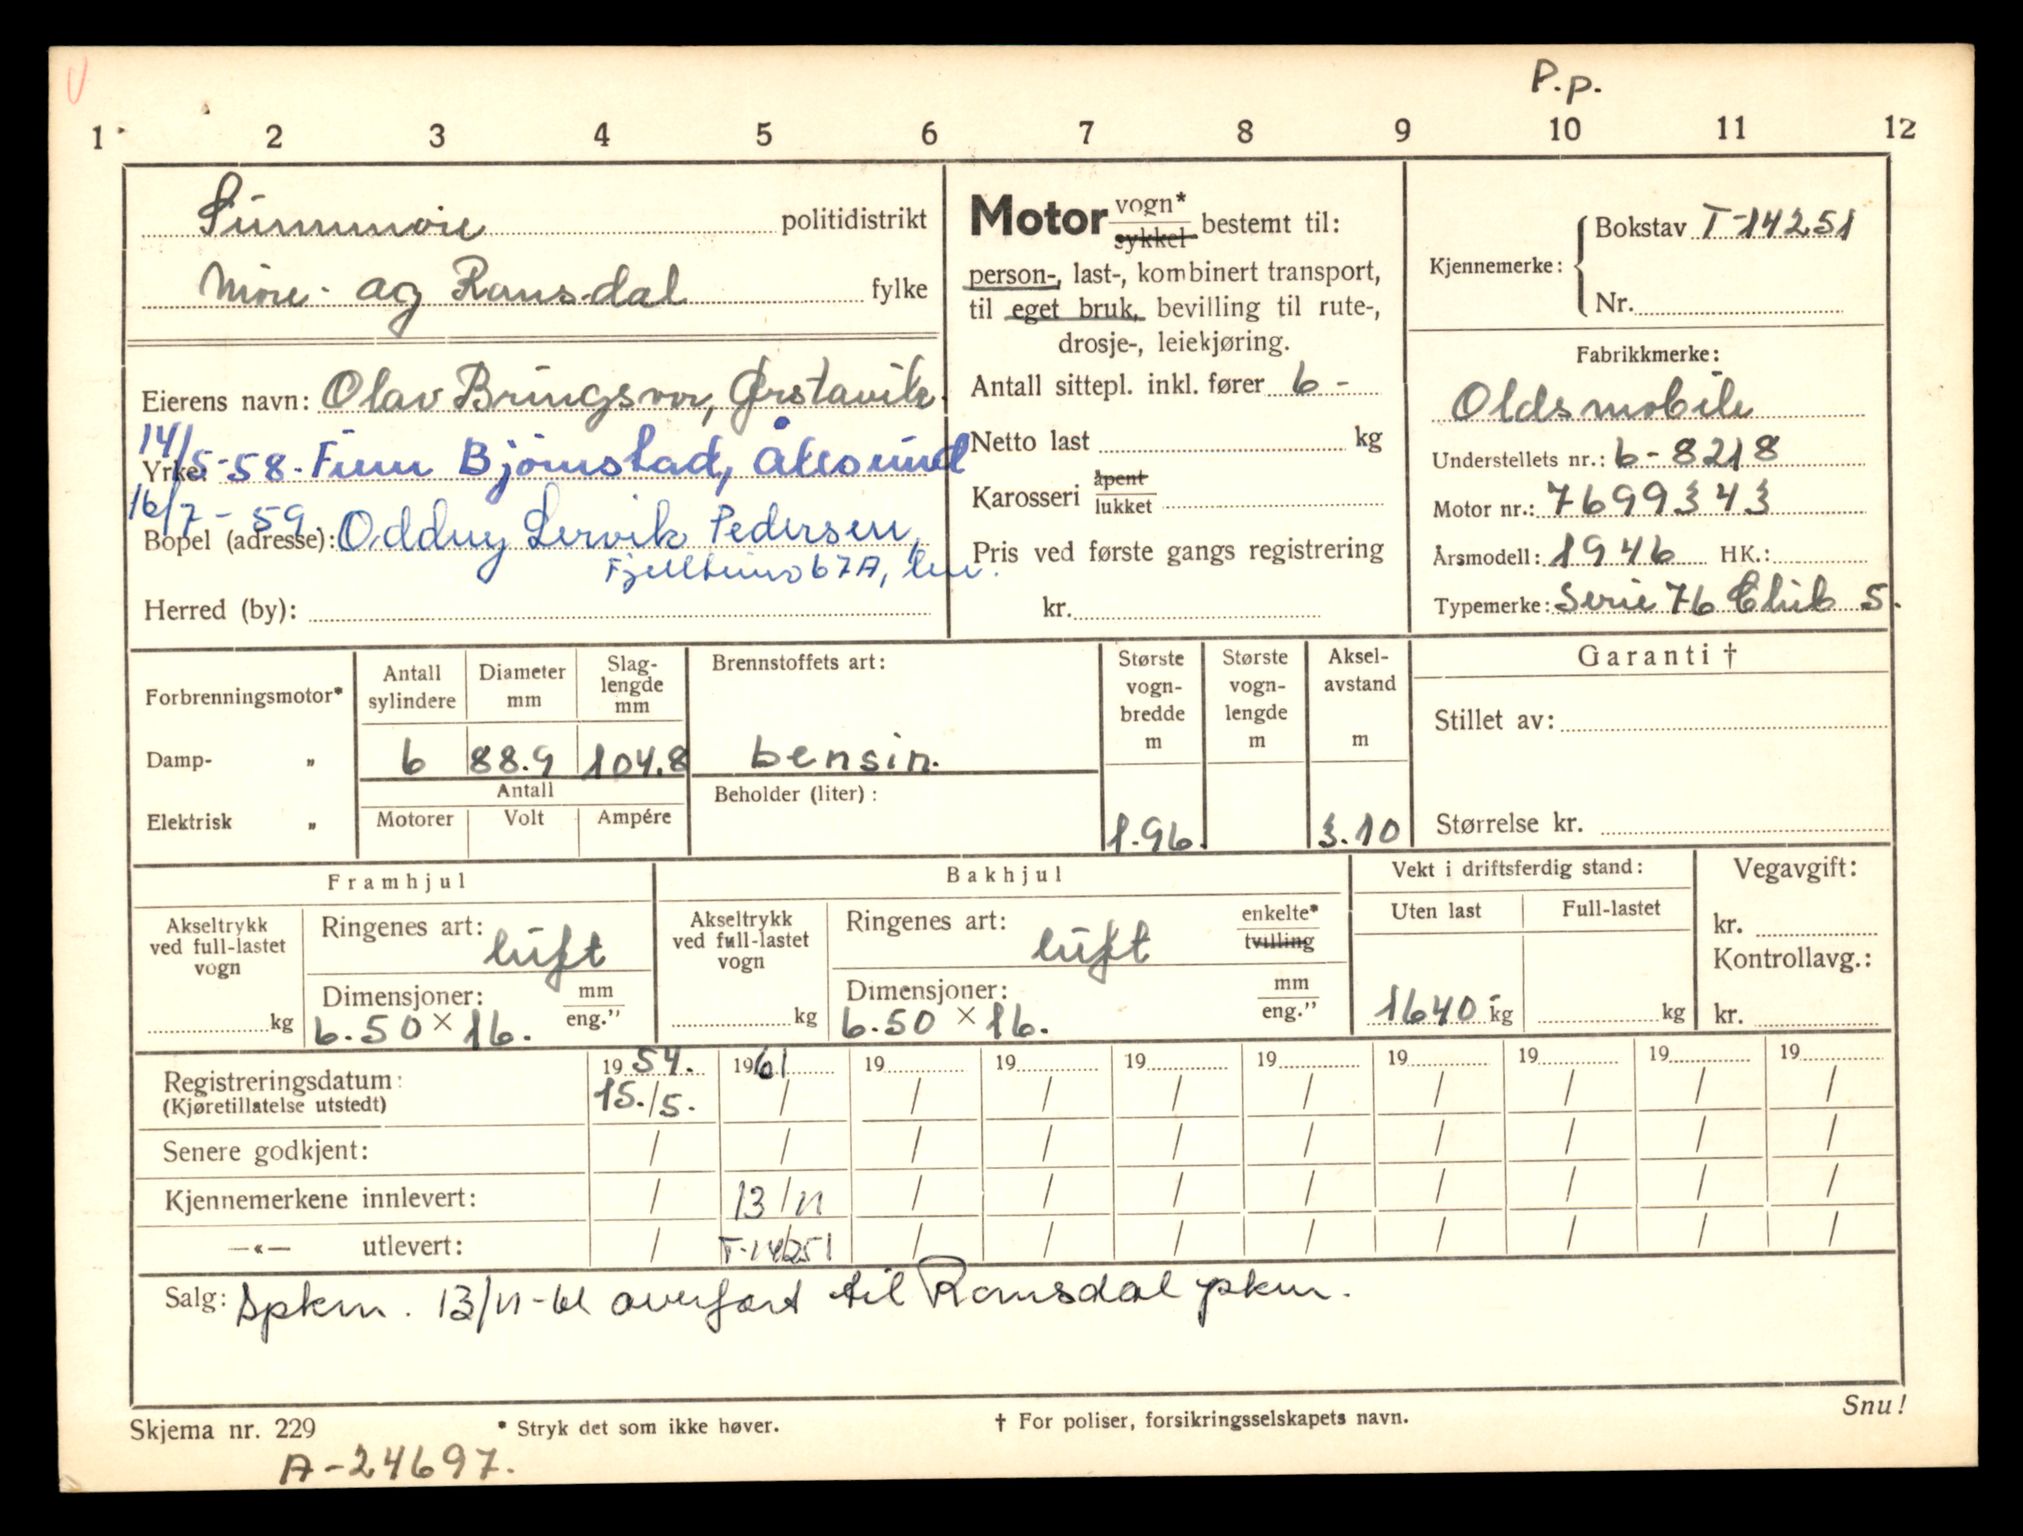 P.p.
1 2 3 4 5 6 7 8 9 10 11 12
Sunnmøre politidistrikt
Møre- og Romsdal fylke
Eierens navn: Olav Bringsvor, Ørstavik
14/5-58. Finn Bjørnstad, Ålesund
Yrke:
16/7-59
Bopel (adresse): Oddny Lervik Pedersen,
Fjelltunv 67A, her.
Herred (by):
Motor vogn* sykkel bestemt til:
person-, last-, kombinert transport,
til eget bruk, bevilling til rute-,
drosje-, leiekjøring.
Antall sittepl. inkl. fører 6 -
Netto last kg
Karosseri åpent lukket
Pris ved første gangs registrering
kr.
Kjennemerke: Bokstav T-14251
Nr.
Fabrikkmerke:
Oldsmobile
Understellets nr.: 6-8218
Motor nr.: 7699343
Årsmodell: 1946 HK.:
Typemerke: Serie 76 Club S.
Forbrenningsmotor*
Damp- „
Elektrisk „
Antall sylindere
Diameter mm
Slag-lengde mm
6 88.9 104.8
Antall
Motorer Volt Ampére
Brennstoffets art:
bensin.
Beholder (liter):
Største vogn-bredde m
1.96
Største vogn-lengde m
Aksel-avstand m
3.10
Garanti †
Stillet av:
Størrelse kr.
Framhjul
Akseltrykk ved full-lastet vogn
kg
Ringenes art: luft
Dimensjoner: mm eng."
6.50 × 16.
Bakhjul
Akseltrykk ved full-lastet vogn
kg
Ringenes art: luft enkelte* tvilling
Dimensjoner: mm eng."
6.50 × 16.
Vekt i driftsferdig stand:
Uten last Full-lastet
1640 kg kg
Vegavgift:
kr.
Kontrollavg.:
kr.
19 54. 1961 19 19 19 19 19 19 19 19
Registreringsdatum: 15./5. / / / / / / / / /
(Kjøretillatelse utstedt)
Senere godkjent: / / / / / / / / / /
Kjennemerkene innlevert: / 13/11 / / / / / / / /
—«— utlevert: / T-14251 / / / / / / / /
Salg: Spkm. 13/11-61 overført til Romsdal pkm.
Snu!
Skjema nr. 229 * Stryk det som ikke høver. † For poliser, forsikringsselskapets navn.
A-24697.